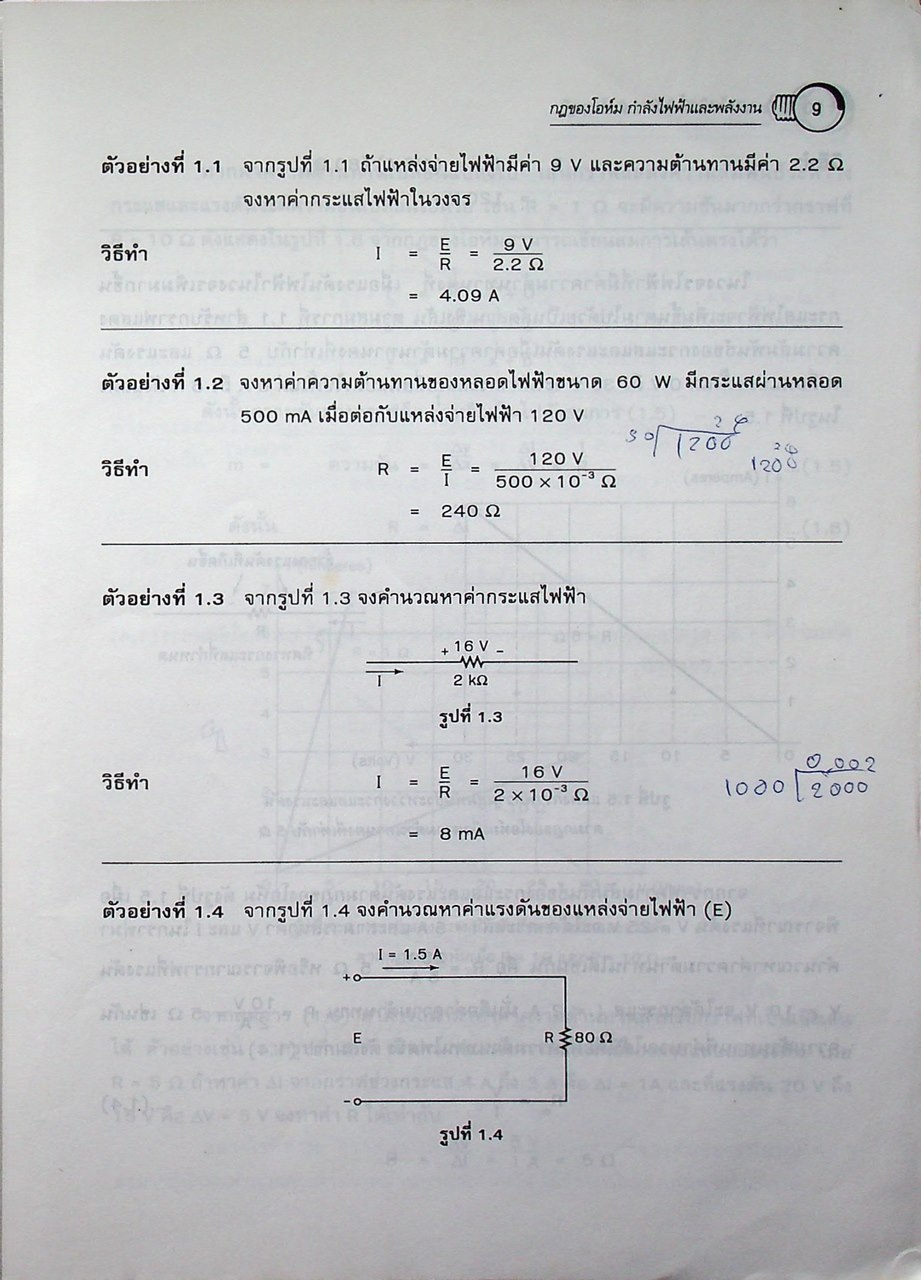 กฎของโอห์ม กำลังไฟฟ้าและพลังงาน 9
ตัวอย่างที่ 1.1 จากรูปที่ 1.1 ถ้าแหล่งจ่ายไฟฟ้ามีค่า 9 V และความต้านทานมีค่า 2.2 Ω
จงหาค่ากระแสไฟฟ้าในวงจร
วิธีทำ I = E/R = 9 V/2.2 Ω
= 4.09 A
ตัวอย่างที่ 1.2 จงหาค่าความต้านทานของหลอดไฟฟ้าขนาด 60 W มีกระแสผ่านหลอด
500 mA เมื่อต่อกับแหล่งจ่ายไฟฟ้า 120 V
วิธีทำ R = E/I = 120 V/500 × 10⁻³ Ω
= 240 Ω
ตัวอย่างที่ 1.3 จากรูปที่ 1.3 จงคำนวณหาค่ากระแสไฟฟ้า
+ 16 V –
I 2 kΩ
รูปที่ 1.3
วิธีทำ I = E/R = 16 V/2 × 10⁻³ Ω
0.002
1000 2000
= 8 mA
ตัวอย่างที่ 1.4 จากรูปที่ 1.4 จงคำนวณหาค่าแรงดันของแหล่งจ่ายไฟฟ้า (E)
I = 1.5 A
+
E R 80 Ω
–
รูปที่ 1.4